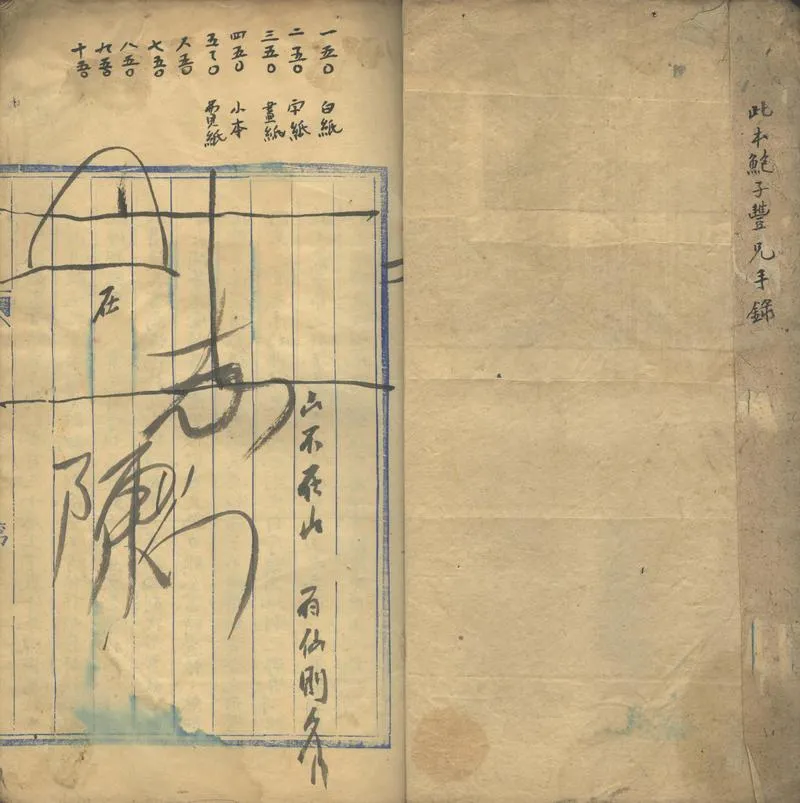 此本鮑子豐兄手錄
一五〇 白紙
二五〇 字紙
三五〇 畫紙
四五〇 小本
紙
六五〇
七五〇
八五〇
九五〇
十五〇
山不在山 有仙則名
陳
在